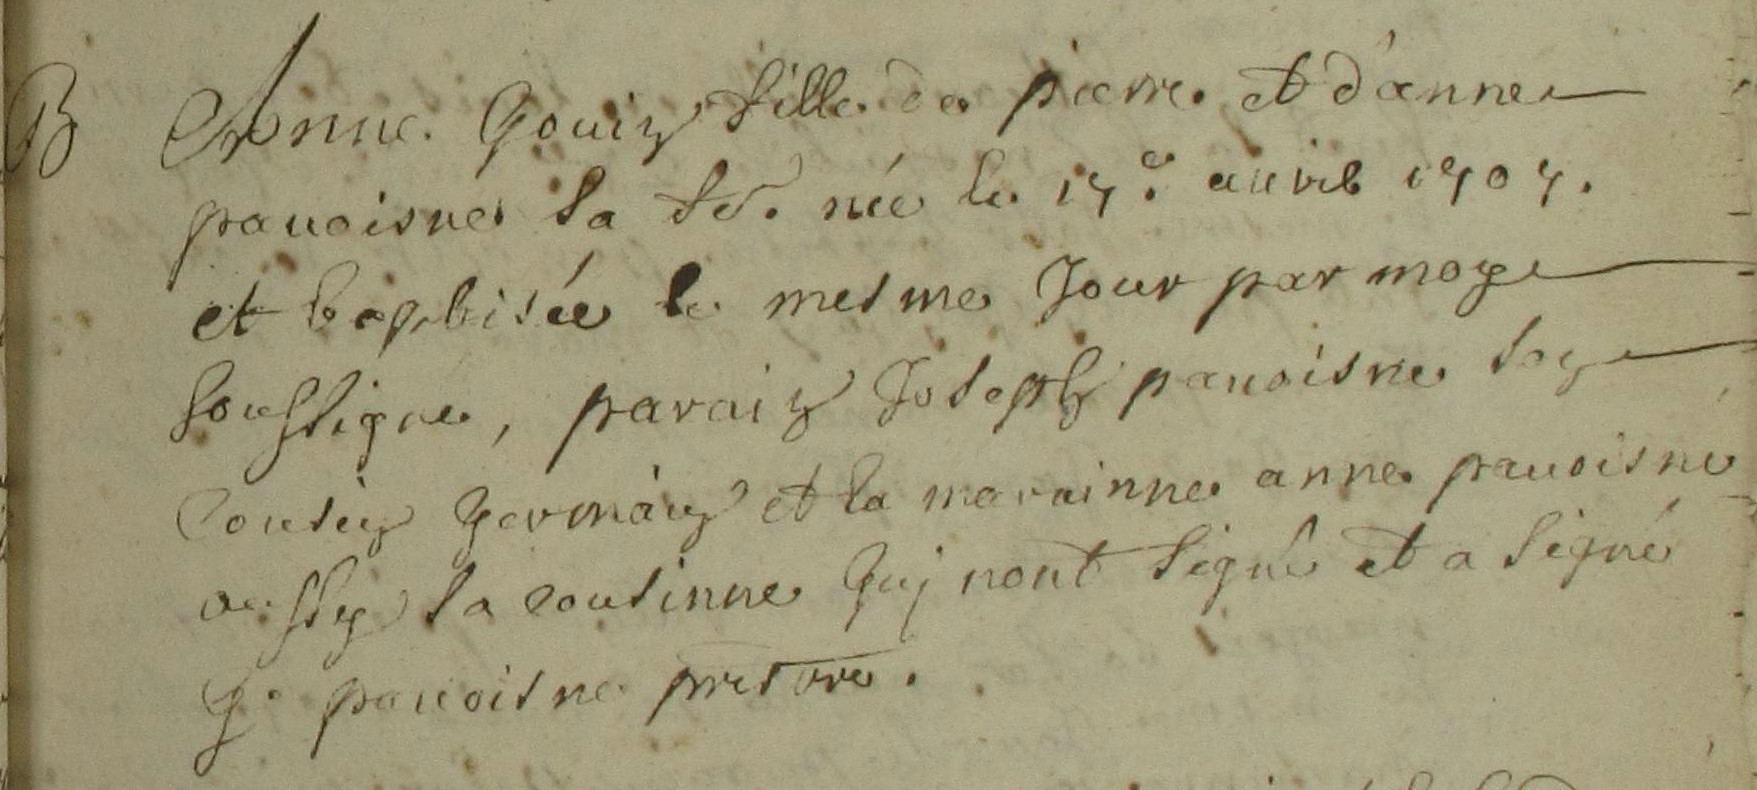 B Anne Gouin fille de pierre et d'anne
pauoisne sa fe. née le 17e. auril 1707.
et baptisée le mesme Jour par moy
soussigne, parain Joseph pauoisne son
cousin germain et la marainne anne pauoisne
aussy sa cousinne quj nont signé et a signé
g. pauoisne prestre.